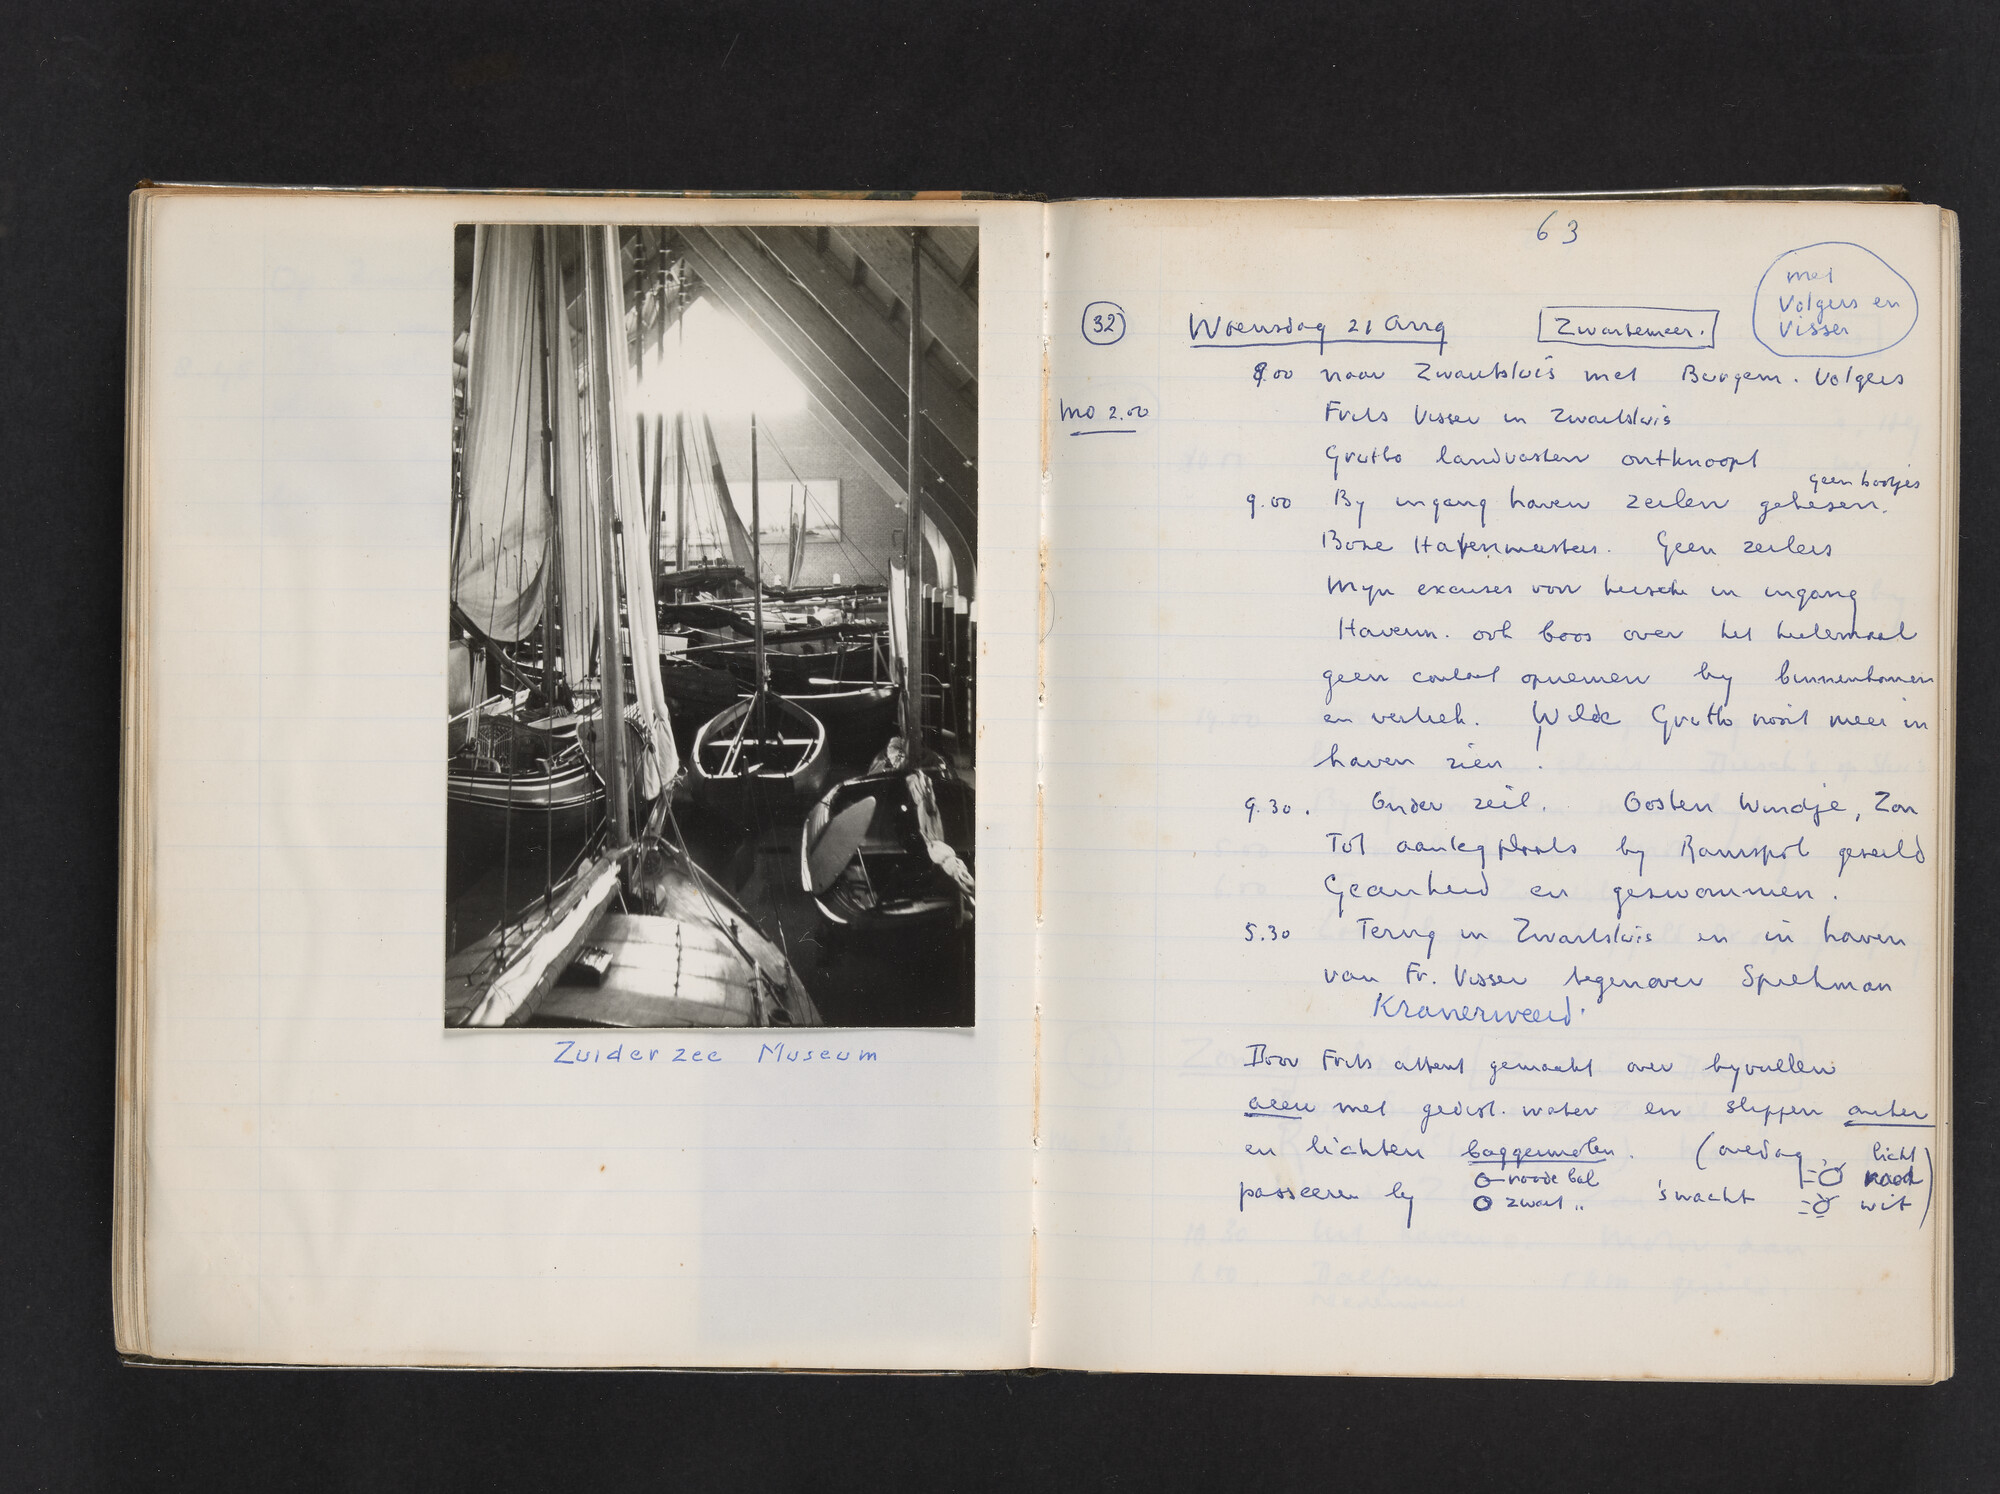 Zuiderzee Museum
63
met
Volgers en
Visser
32
Woensdag 21 Aug
Zwartemeer.
8.00 naar Zwartsluis met Burgem. Volgers
mo 2.00
Frits Visser in Zwartsluis
Grutto landvasten ontknoopt
geen bootjes
9.00 By ingang haven zeilen gehesen.
Boze Havenmeester. Geen zeilers
Myn excuses voor in ingang
Havenm. ook boos over het helemaal
geen contact opnemen by binnenkomen
en vertrek. Wilde Grutto nooit meer in
haven zien.
9.30. Onder zeil. Oosten Windje, Zon
Tot aanlegplaats by Ramspol gezeild
Geankerd en geswommen.
5.30 Terug in Zwartsluis en in haven
van Fr. Visser tegenover Spiekman
Kranerweerd.
Door Frits attent gemaakt over byvullen
accu met gedist. water en slippen anker
en lichten baggermolen. (overdag licht
passeren by rode bal 's nacht rood
zwart " wit)